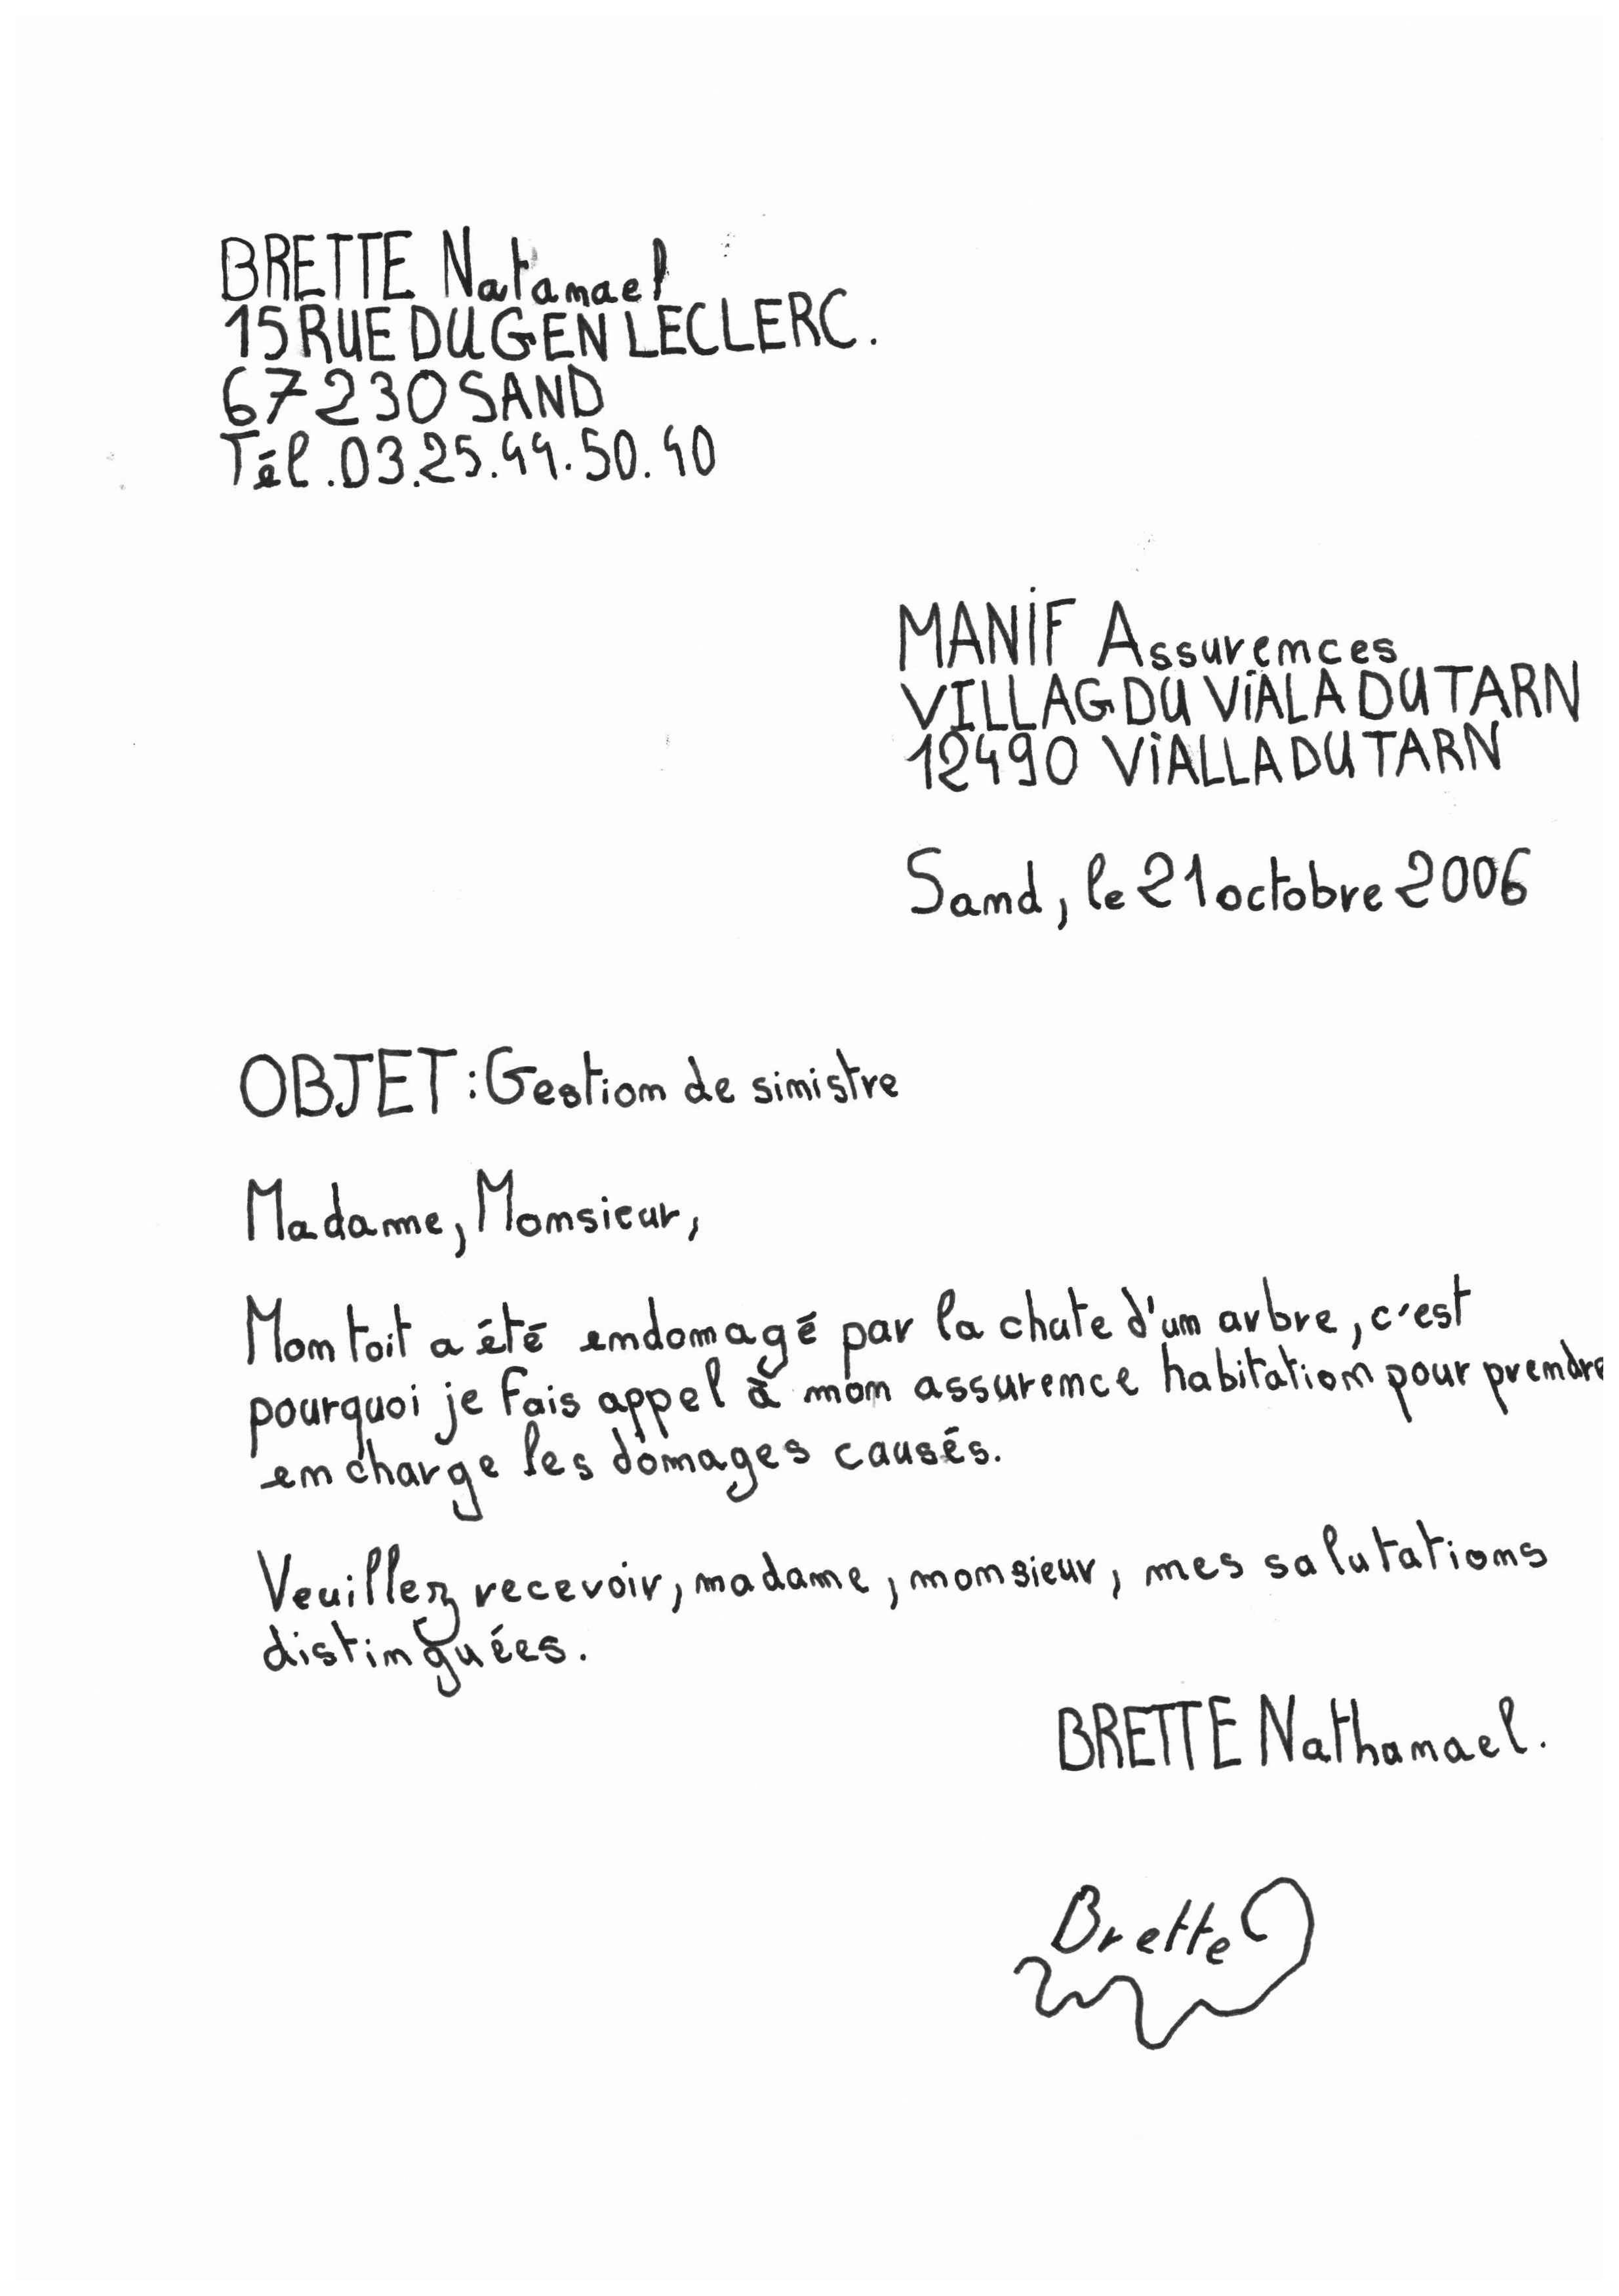 BRETTE Natanael
15 RUE DU GEN LECLERC.
67230 SAND
Tél.03.25.44.50.40
MANIF Assurences
VILLAG DU VIALA DU TARN
12490 VIALLA DU TARN
Sand, le 21 octobre 2006
OBJET : Gestion de sinistre
Madame, Monsieur,
Mon toit a été endomagé par la chute d'un arbre, c'est
pourquoi je fais appel à mon assurence habitation pour prendre
en charge les domages causés.
Veuillez recevoir, madame, monsieur, mes salutations
distinguées.
BRETTE Nathanael.
Brette